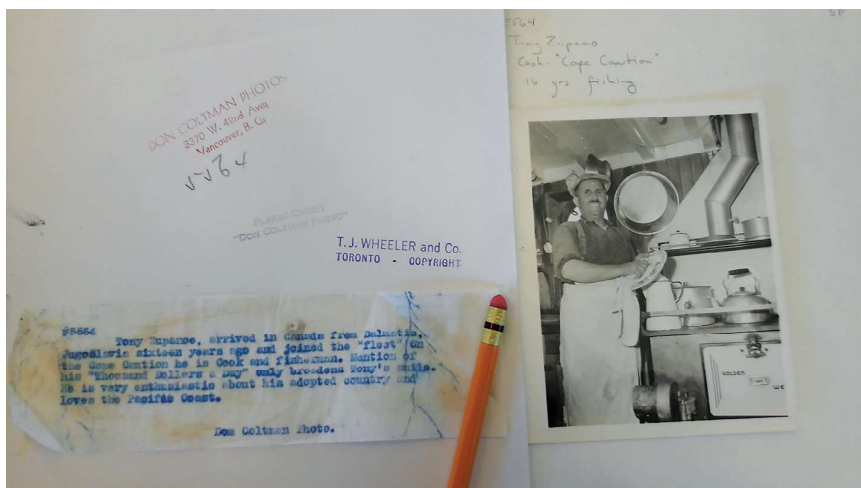 DON COLTMAN PHOTOS
3370 W. 42nd Ave
Vancouver, B. C.
5564
PLEASE CREDIT
"DON COLTMAN PHOTO"
T.J. WHEELER and Co.
TORONTO - COPYRIGHT
#5564
Tony Zupanoe, arrived in Canada from Dalmatia,
Jugoslavia sixteen years ago and joined the "fleet" On
the Cape Caution he is Cook and fisherman. Mention of
his "Thousand Dollars a Day" only broadens Tony's smile.
He is very enthusiastic about his adopted country and
loves the Pacific Coast.
Don Coltman Photo.
5564
Tony Zupano
Cook "Cape Caution"
16 yrs fishing
GOLDEN
WE